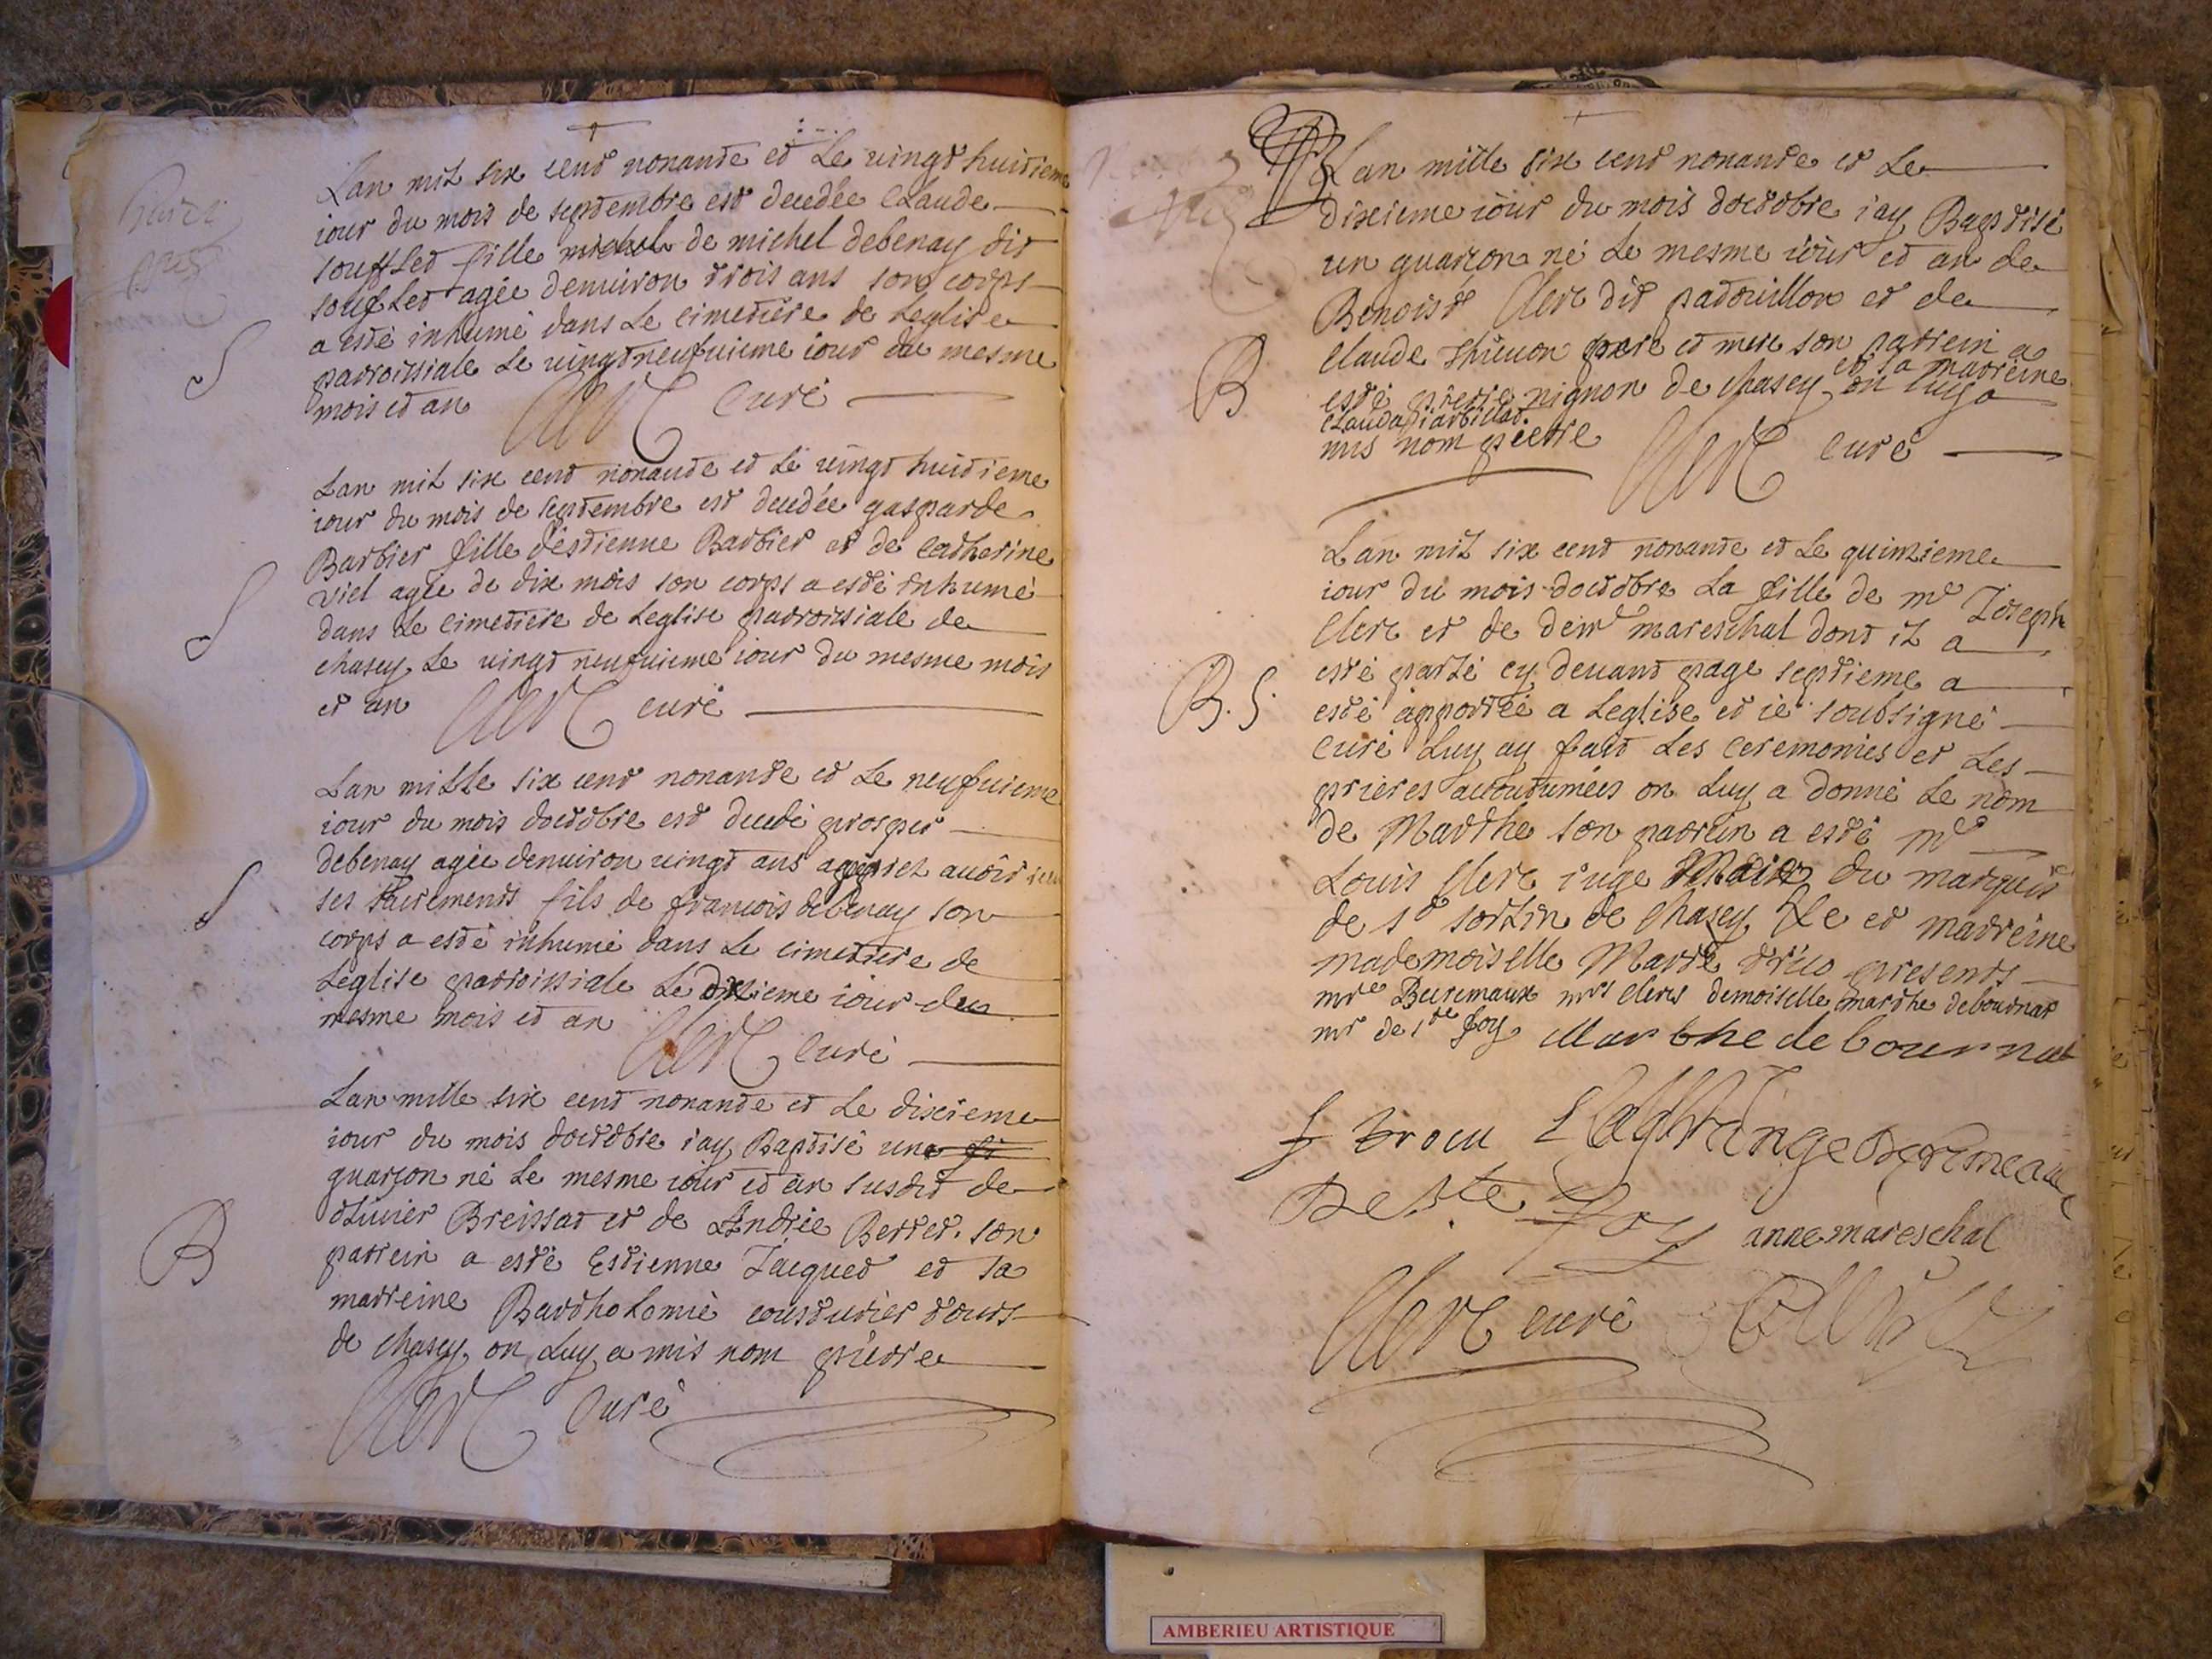 Lan mil six cent nonante et Le vingt huitieme
iour du mois de septembre est decedée CLaude
soufflet fille michel de michel debenay dit
soufLet agée denuiron trois ans son corps
a esté inhumé dans Le cimetiere de Leglise
parroissiale Le vingt neufuieme iour du mesme
mois et an Clerc Curé
S
Lan mil six cent nonante et Le vingt huitieme
iour du mois de septembre est decedée gasparde
Barbier fille destienne Barbier et de Catherine
viel agée de dix mois son corps a esté inhumé
dans Le cimetiere de Leglise parroissiale de
chasey Le vingt neufuieme iour du mesme mois
et an Clerc curé
S
Lan miLLe six cent nonante et Le neufuieme
iour du mois doctobre est decedé prosper
debenay agée denuiron vingt ans apprez auoir
ses sacrements fils de francois debenay son
corps a esté inhumé dans Le cimetiere de
Leglise parroissiale Le dixieme iour du
mesme mois et an Clerc Curé
S
Lan mille six cent nonante et Le dixieme
iour du mois doctobre i'ay Baptisé une fi
guarson né Le mesme iour et an susdit de
oLiuier Breissat et de Andrée Berret. son
parrein a esté Estienne Jacquet et sa
marreine BarthoLomie cousturier touts
de chasey on Luy a mis nom pierre
B
Clerc Curé
Lan mille six cent nonante et Le
dixieme iour du mois doctobre i'ay Baptisé
un guarson né Le mesme iour et an de
Benoist Clerc dit patouillon et de
Claude Thieuon pere et mere son parrein a
esté pierre pignon de chasey et sa marreine on luy a
CLauda iarbillat.
mis nom pierre Clerc curé
B
Lan mil six cent nonante et Le quinzieme
iour du mois doctobre La fille de mre Joseph
Clerc et de demlle mareschal dont iL a
esté parLé cy deuant page septieme a
esté apportée a Leglise et ie soubsigné
Curé Luy ay fait Les Ceremonies et Les
prieres accoutumées on Luy a donné Le nom
de Marthe son parrein a esté mre
Louis Clerc iuge du marquis
de st sorLin de chasey et marreine
mademoiselle Marthe presents
mre mrs clercs demoiselle marthe debournat
mr de ste foy Marthe de bournat
B. S.
De Ste Foy anne mareschal
Clerc curé
AMBERIEU ARTISTIQUE